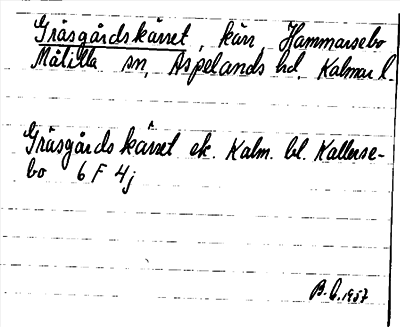 Gräsgårdskärret, kärr, Hammarsebo
Målilla sn, Aspelands hd, Kalmar l.
Gräsgårdskärret ek. Kalm. bl. Kallerse-
bo 6 F 4j
B. O. 1957